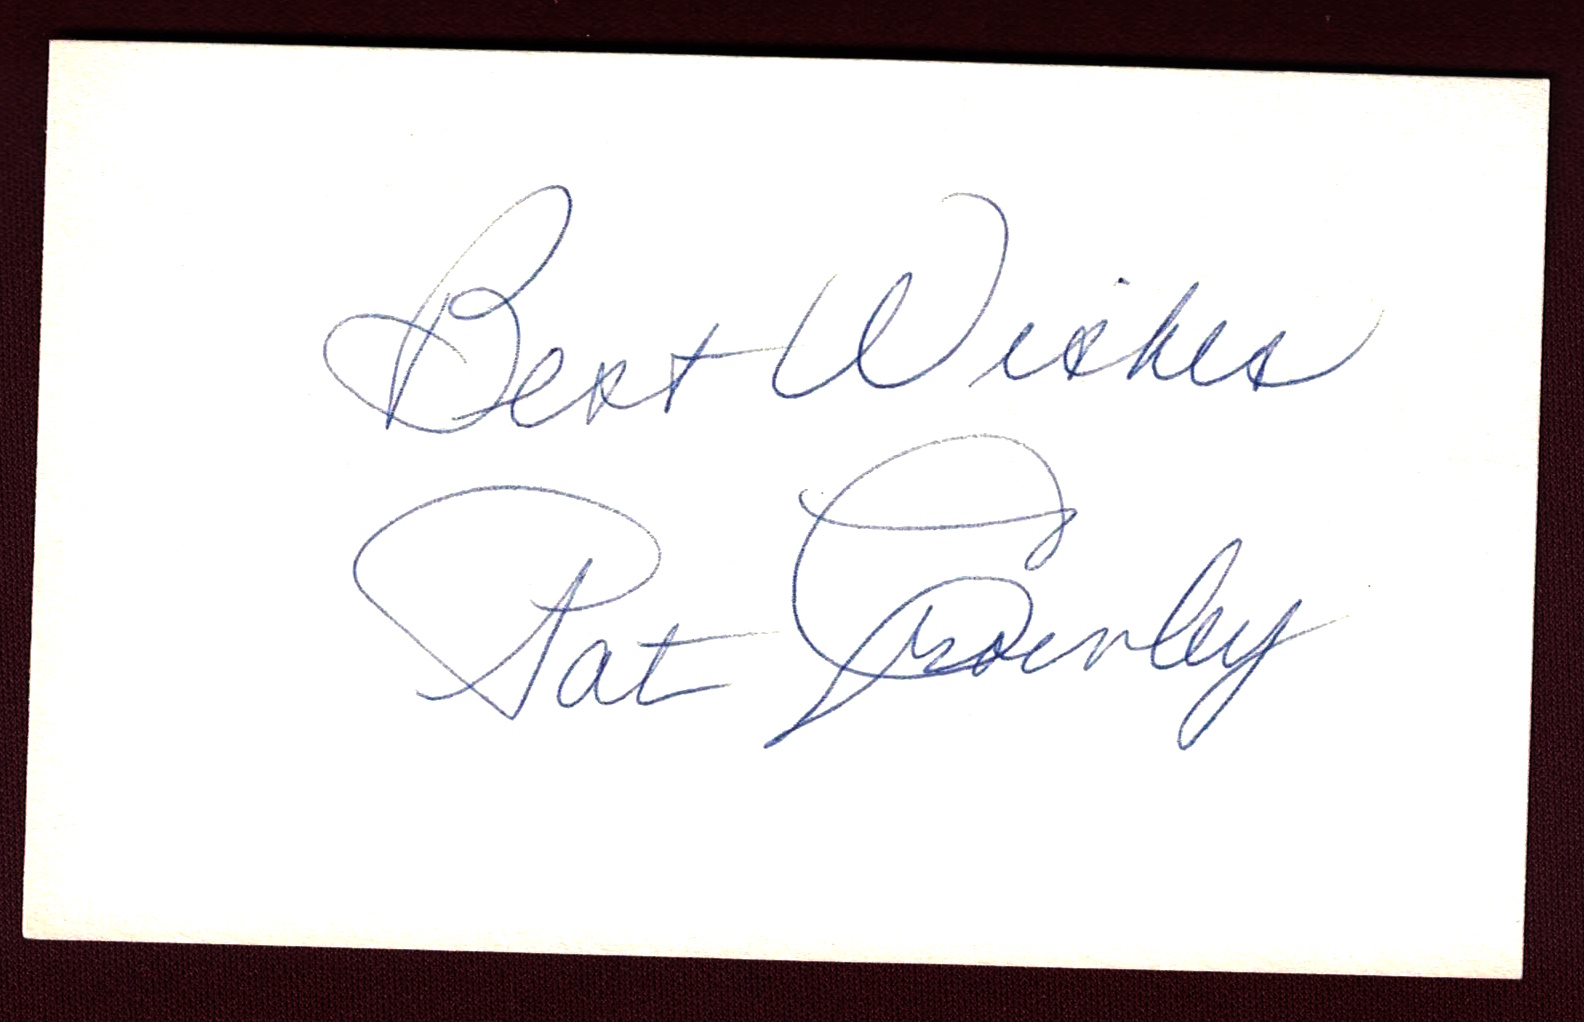 Best Wishes
Pat Crowley